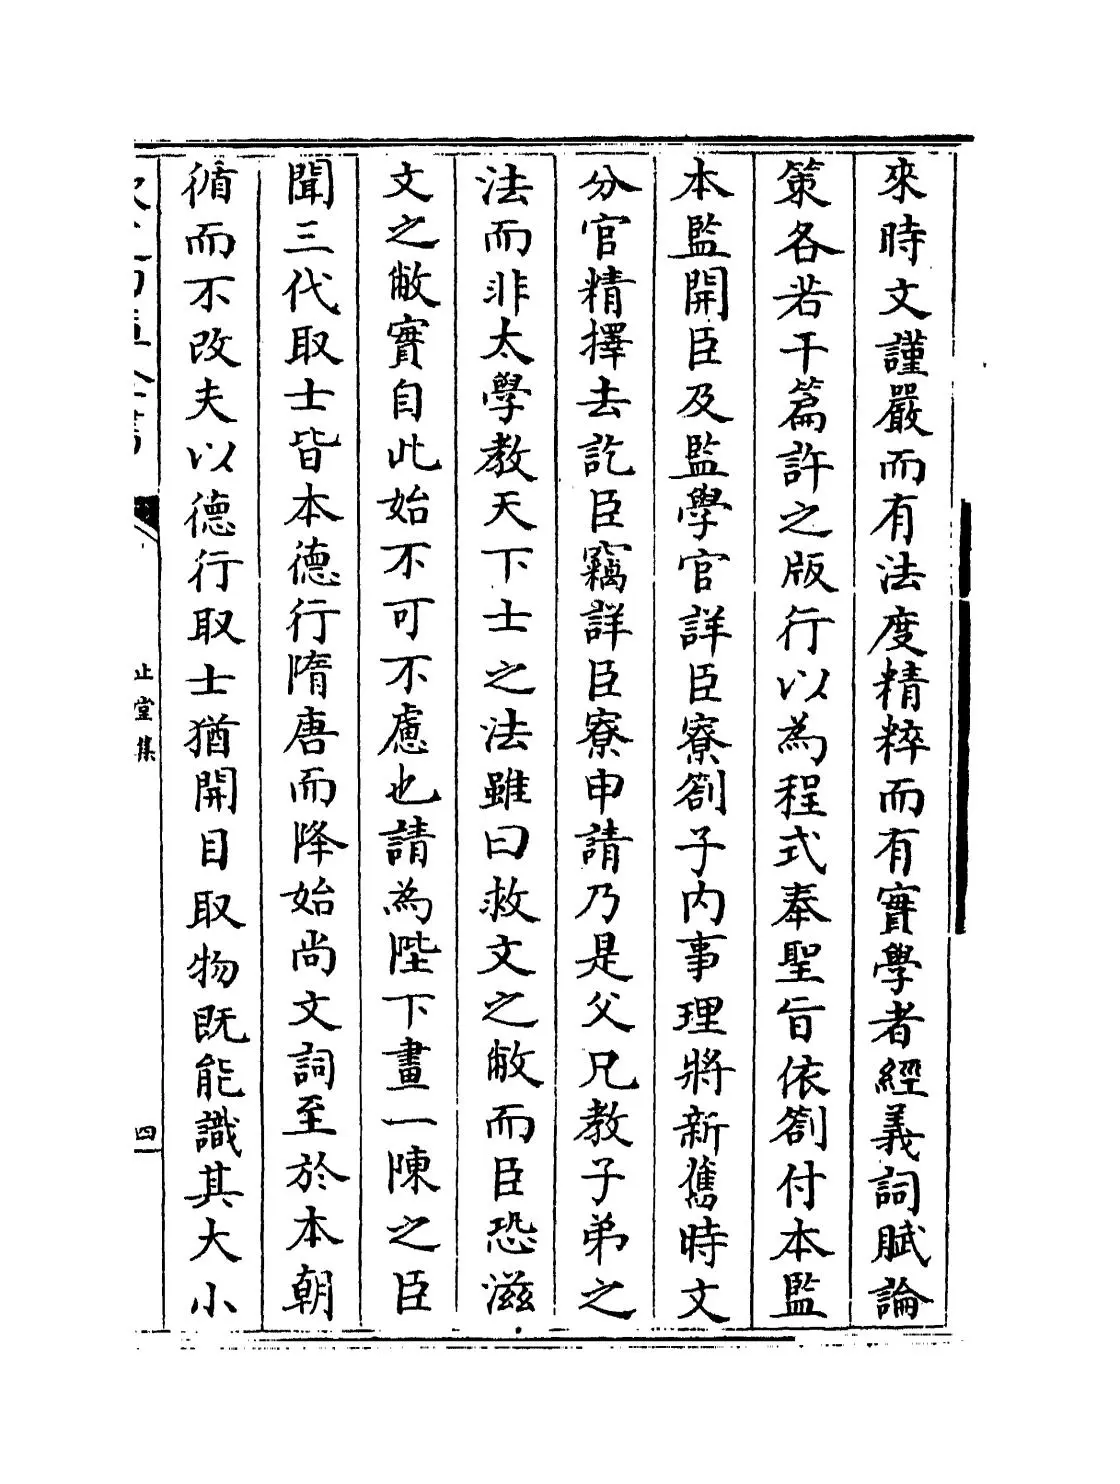 來時文謹嚴而有法度精粹而有實學者經義詞賦論
策各若干篇許之版行以為程式奉聖旨依劄付本監
本監開臣及監學官詳臣寮劄子内事理將新舊時文
分官精擇去訖臣竊詳臣寮申請乃是父兄教子弟之
法而非太學教天下士之法雖曰救文之敝而臣恐滋
文之敝實自此始不可不慮也請為陛下畫一陳之臣
聞三代取士皆本德行隋唐而降始尚文詞至於本朝
循而不改夫以德行取士猶開目取物既能識其大小
止堂集
四